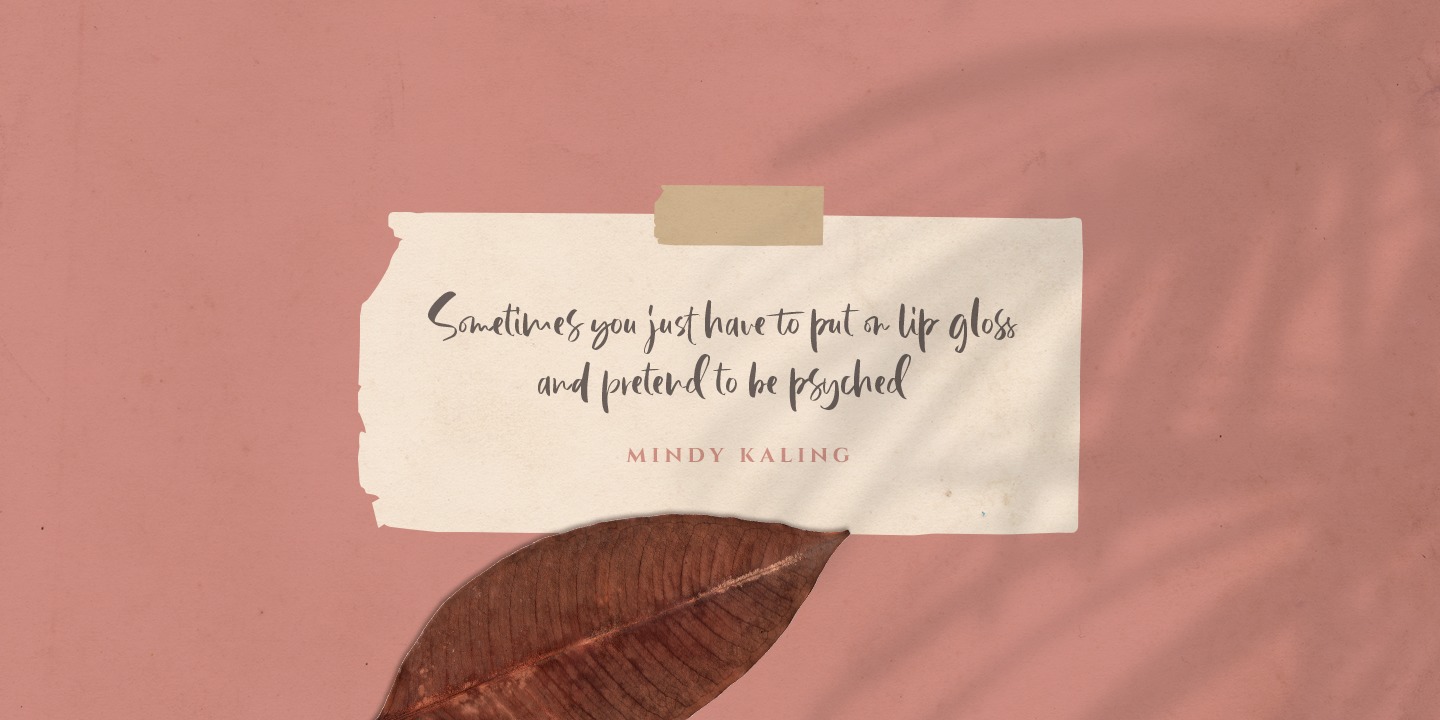 Sometimes you just have to put on lip gloss
and pretend to be psyched
MINDY KALING